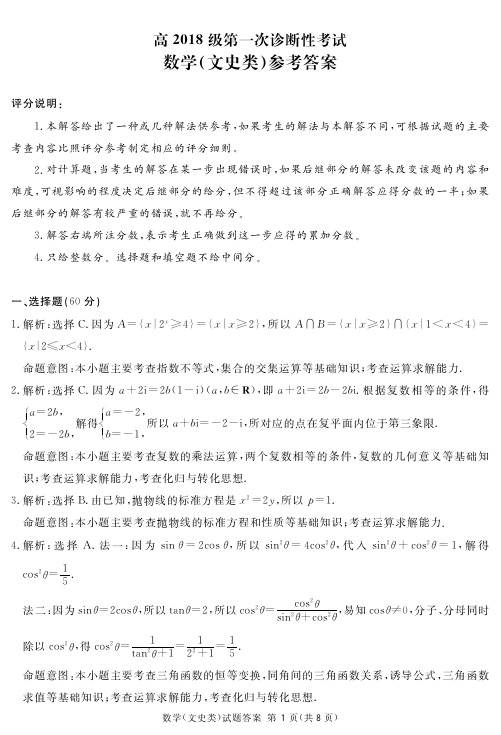 高 2018 级第一次诊断性考试
数学(文史类)参考答案
评分说明:
1. 本解答给出了一种或几种解法供参考,如果考生的解法与本解答不同,可根据试题的主要
考查内容比照评分参考制定相应的评分细则。
2. 对计算题,当考生的解答在某一步出现错误时,如果后继部分的解答未改变该题的内容和
难度,可视影响的程度决定后继部分的给分,但不得超过该部分正确解答应得分数的一半;如果
后继部分的解答有较严重的错误,就不再给分。
3. 解答右端所注分数,表示考生正确做到这一步应得的累加分数。
4. 只给整数分。选择题和填空题不给中间分。
一、选择题(60 分)
1. 解析:选择 C. 因为 A={x|2ˣ≥4}={x|x≥2},所以 A∩B={x|x≥2}∩{x|1<x<4}=
{x|2≤x<4}.
命题意图:本小题主要考查指数不等式,集合的交集运算等基础知识;考查运算求解能力.
2. 解析:选择 C. 因为 a+2i=2b(1-i)(a,b∈R),即 a+2i=2b-2bi. 根据复数相等的条件,得
{a=2b, 2=-2b, 解得 {a=-2, b=-1, 所以 a+bi=-2-i,所对应的点在复平面内位于第三象限.
命题意图:本小题主要考查复数的乘法运算,两个复数相等的条件,复数的几何意义等基础知
识;考查运算求解能力,考查化归与转化思想.
3. 解析:选择 B. 由已知,抛物线的标准方程是 x²=2y,所以 p=1.
命题意图:本小题主要考查抛物线的标准方程和性质等基础知识;考查运算求解能力.
4. 解析:选择 A. 法一:因为 sin θ=2cos θ,所以 sin²θ=4cos²θ,代入 sin²θ+cos²θ=1,解得
cos²θ=1/5.
法二:因为 sinθ=2cosθ,所以 tanθ=2,所以 cos²θ=cos²θ/(sin²θ+cos²θ),易知 cosθ≠0,分子、分母同时
除以 cos²θ,得 cos²θ=1/(tan²θ+1)=1/(2²+1)=1/5.
命题意图:本小题主要考查三角函数的恒等变换,同角间的三角函数关系,诱导公式,三角函数
求值等基础知识;考查运算求解能力,考查化归与转化思想.
数学(文史类)试题答案 第 1 页(共 8 页)